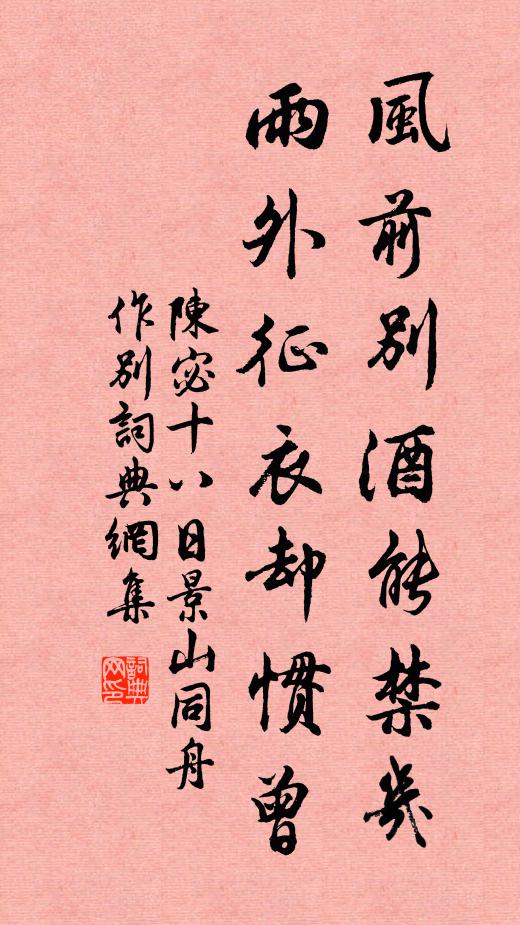 風前別酒能禁幾
雨外征衣却慣曾
陳宓十八日景山同舟
作別詞典網集
詞典网印